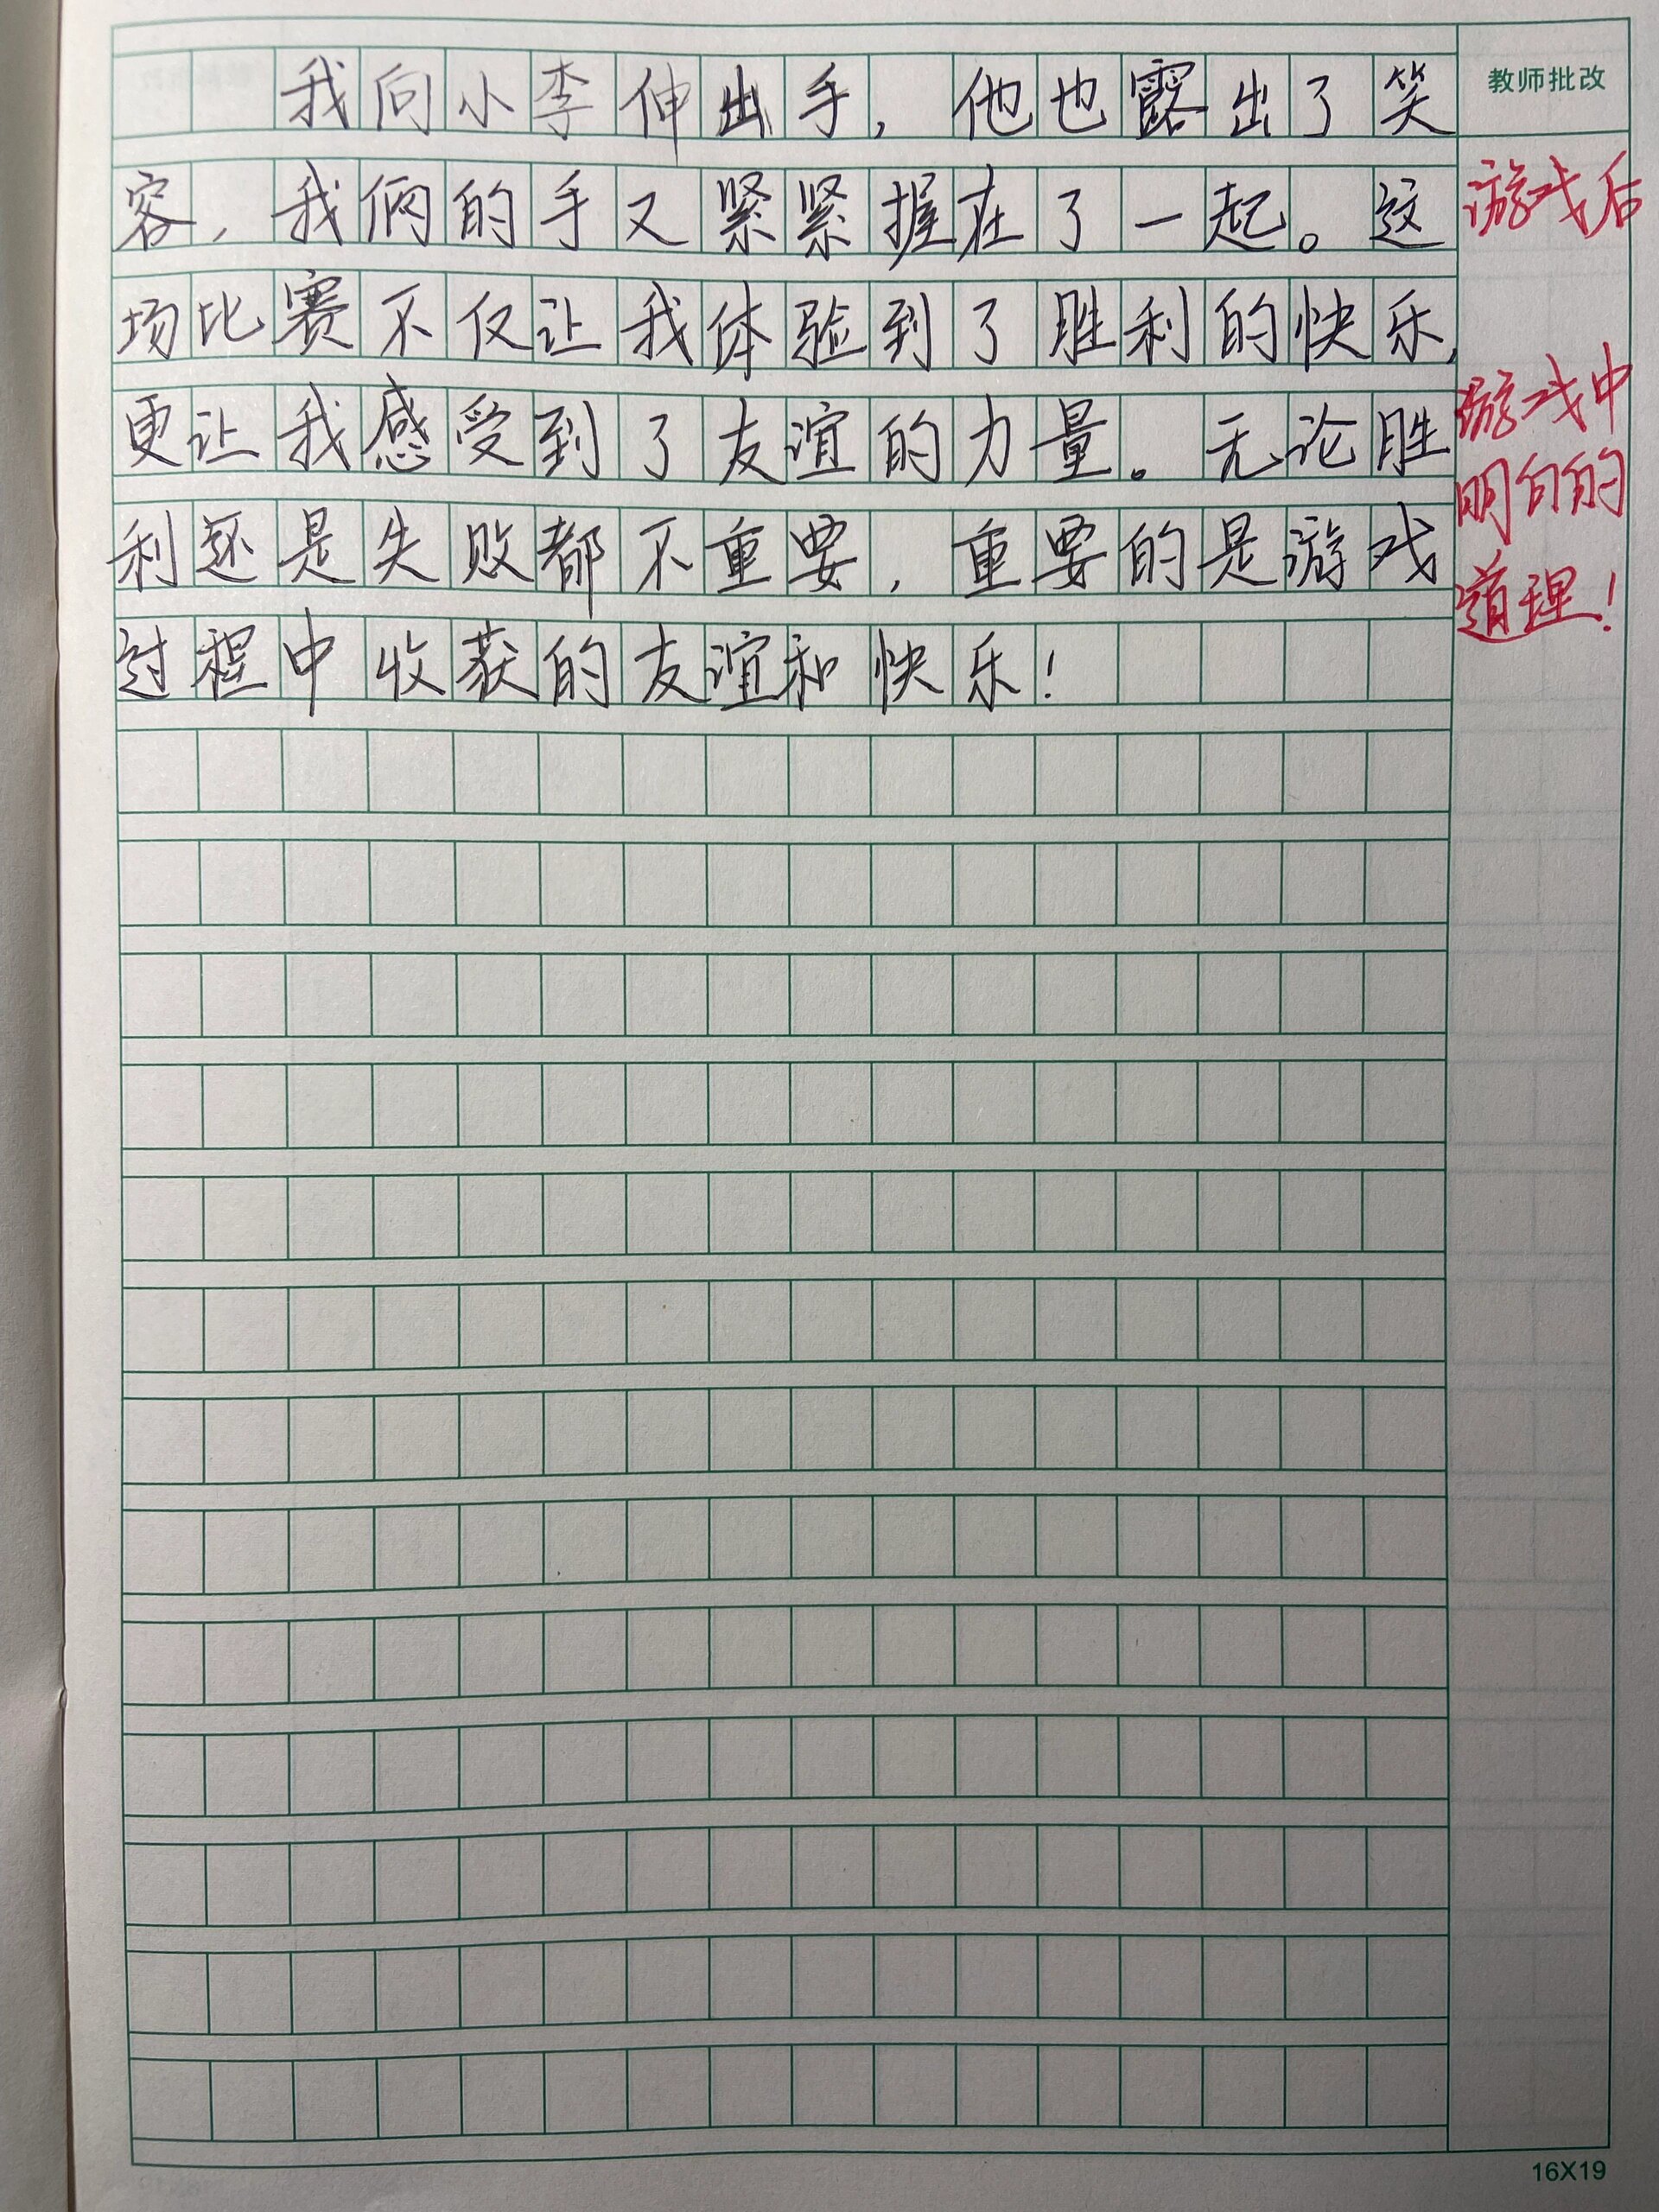 教师批改
我向小李伸出手，他也露出了笑
容，我俩的手又紧紧握在了一起。这
游戏后
场比赛不仅让我体验到了胜利的快乐，
更让我感受到了友谊的力量。无论胜
游戏中
利还是失败都不重要，重要的是游戏
明白的
过程中收获的友谊和快乐！
道理！
16X19